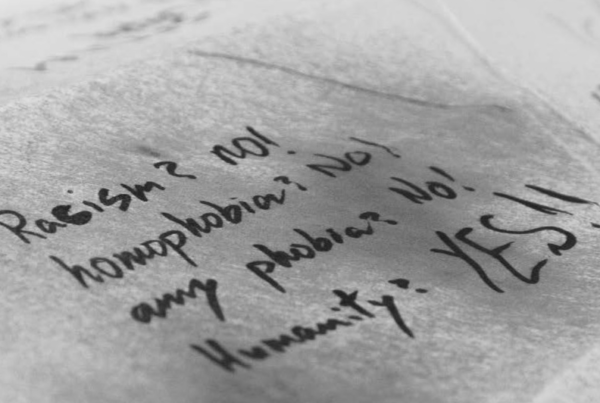 Rasism? NO!
homophobia? No!
any phobia? No!
Humanity? YES!!